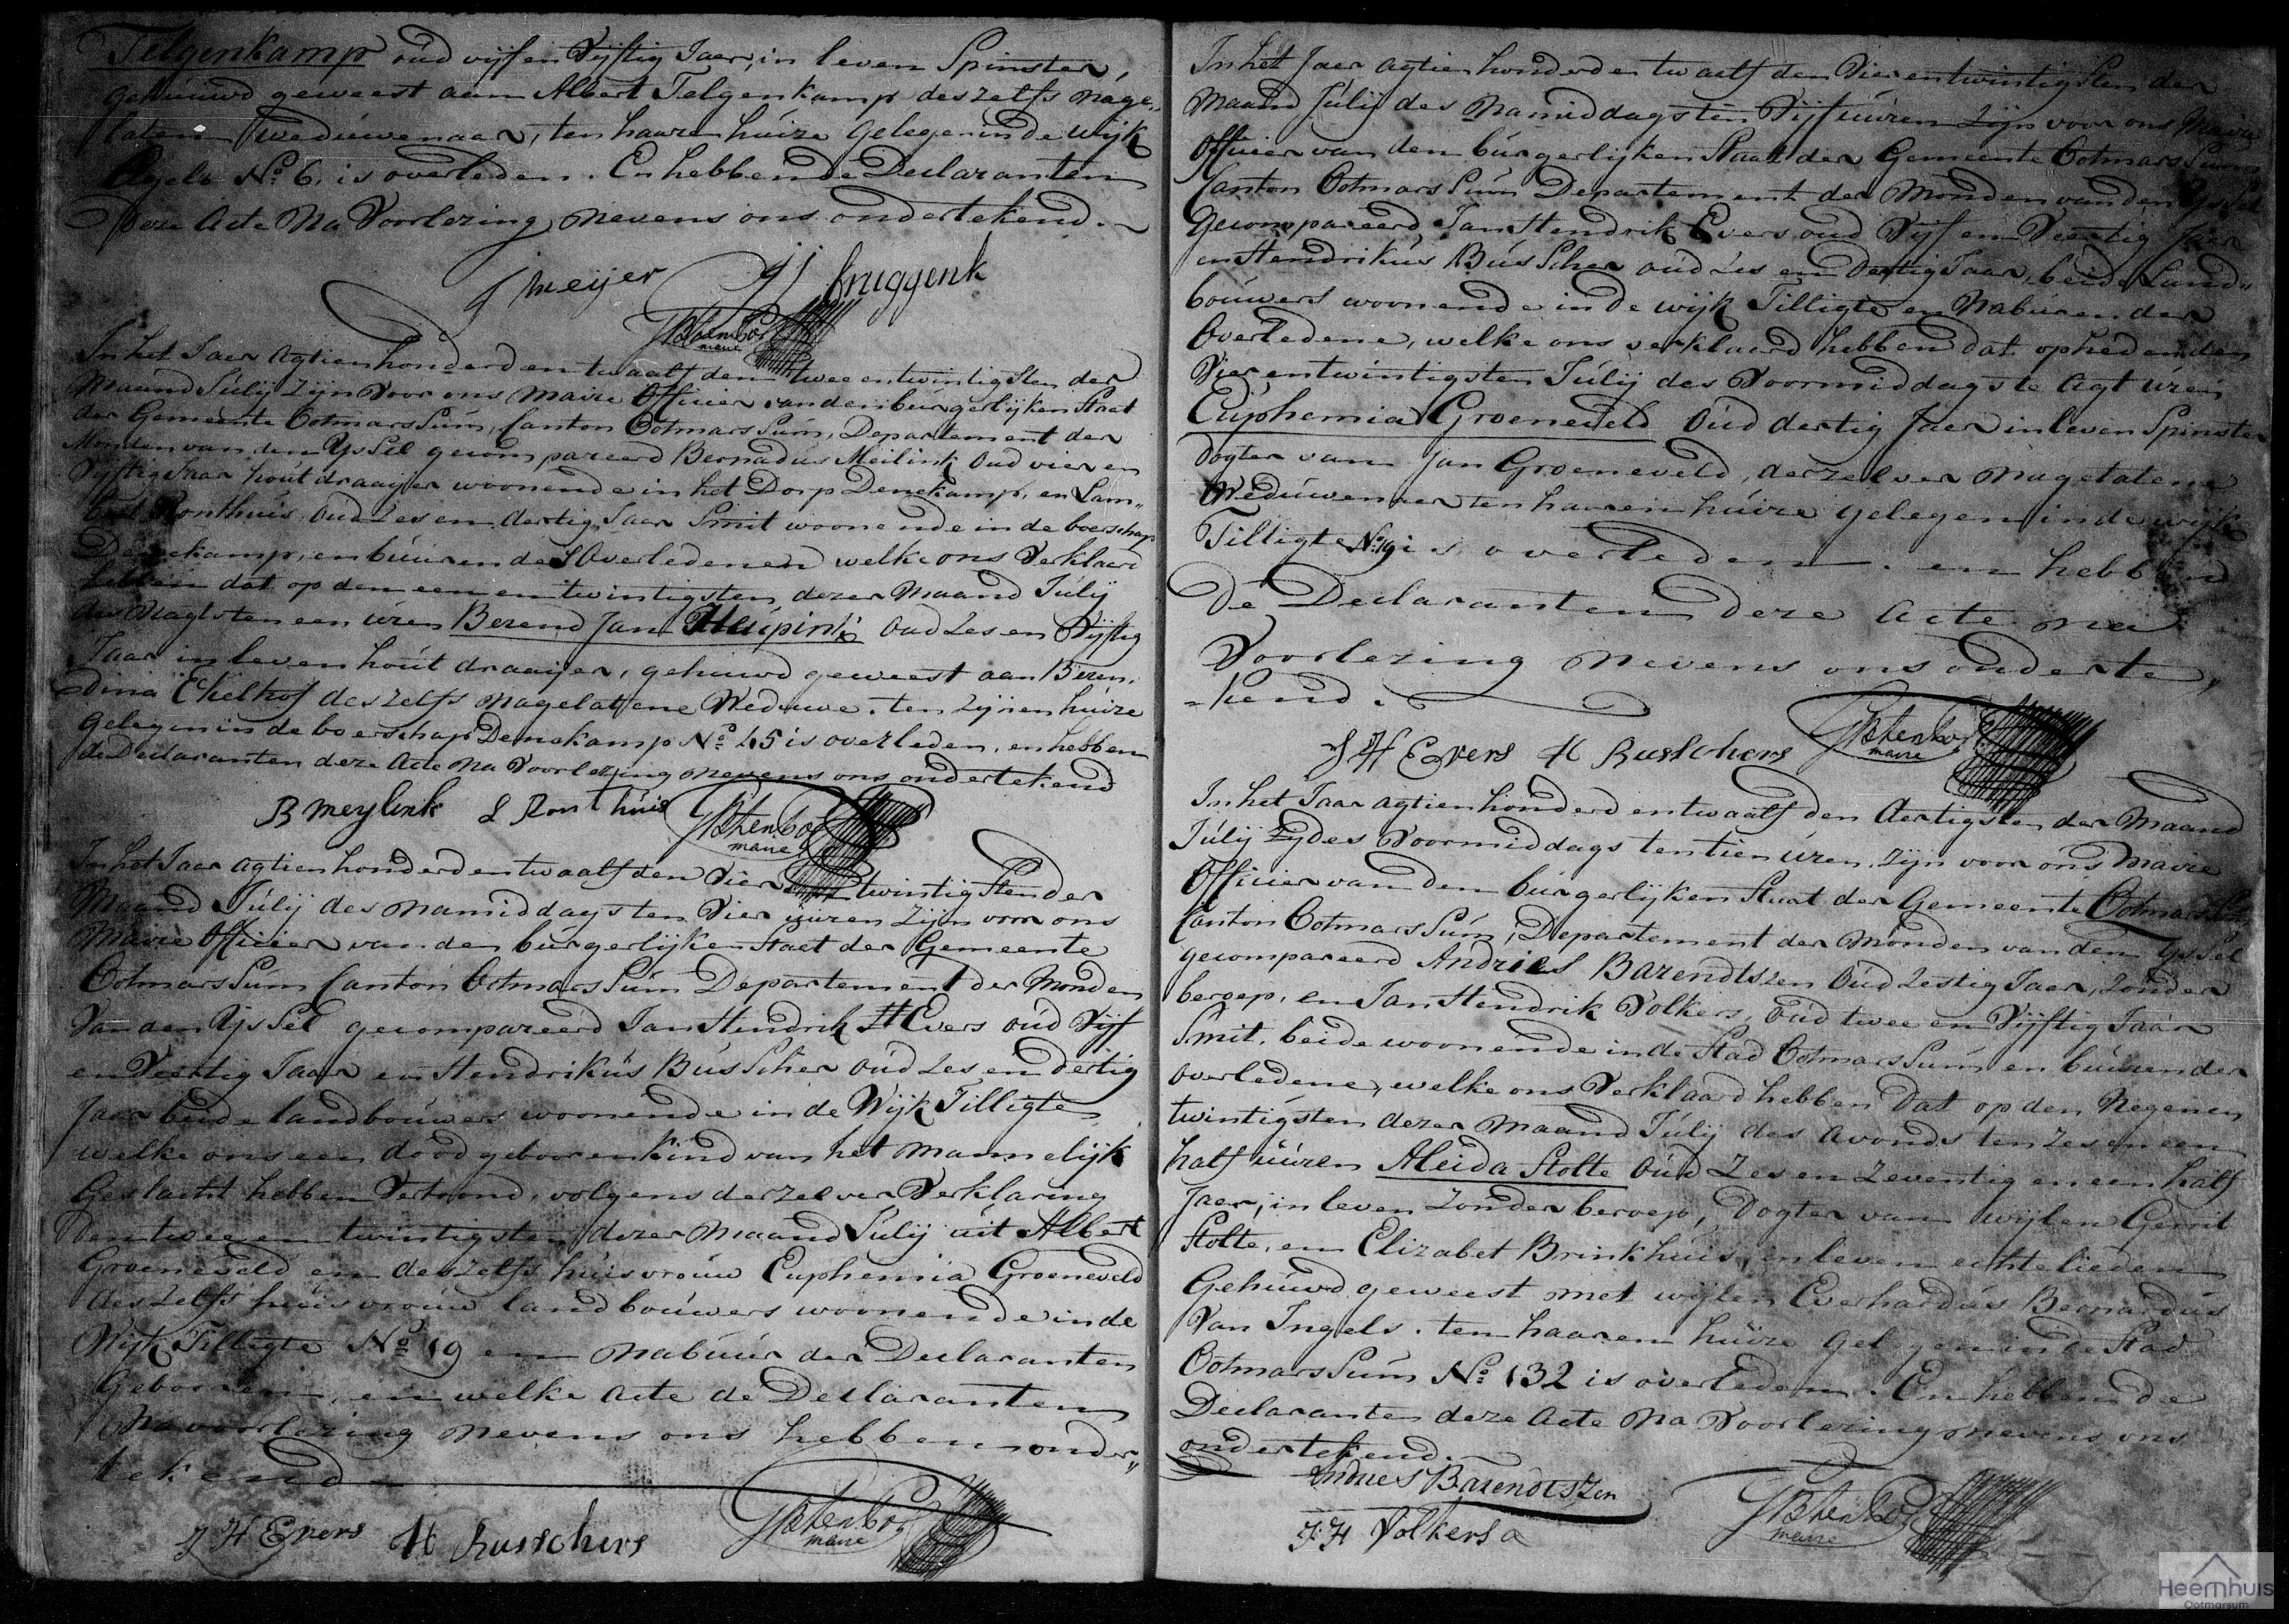 Telgenkamp oud vijf en Vijftig Jaer, in leven Spinster,
gehuuwd geweest aan Albert Telgenkamp deszelfs nage„
laten Weduwenaar, ten haaren huize gelegen in de wijk
Agelo No 6. is overleden. En hebben de Declaranten
deze Acte Na Voorlezing nevens ons ondertekend.
J meijer G J bruggenk
maire
In het Jaer Agtien honderd en twaalf den twee entwintigsten der
Maand Julij Zijn Voor ons Maire Officier van den burgerlijken Staet
der Gemeente Ootmarssum, Canton Ootmarssum, Departement der
Monden van den Yssel gecompareerd Bernadus Meilink Oud vier en
Vijftig Jaar hout draaijer woonende in het Dorp Denekamp, en Lam„
bert Ronthuis, Oud Zes en dertig Jaar Smit woonende in de boerschap
Denekamp, en buuren des Overledenen welke ons Verklaard
hebben dat op den een en twintigsten dezer Maand Julij
des Nagts ten een uren Berend Jan Oud Zes en Vijftig
Jaar in leven hout draaijer, gehuwd geweest aan Beren„
dina Ekelhof deszelfs nagelatene Weduwe. ten Zijnen huize
gelegen in de boerschap Denekamp No 45 is overleden, en hebben
de Declaranten deze Acte Na Voorlezing nevens ons ondertekend
B meylink L Ronthuis
maire
In het Jaar agtien honderd en twaalf den Vier en twintigsten der
Maand Julij des Namiddags ten Vier uuren Zijn voor ons
Maire Officier van den burgerlijken Staet der Gemeente
Ootmarssum Canton Ootmarssum Departement der Monden
Van den Yssel gecompareerd Jan Hendrik Evers oud Vijf
en Veertig Jaar en Hendrikus Busscher oud Zes en dertig
Jaar beide landbouwers woonende in de Wijk Tilligte
welke ons een dood gebooren kind van het Mannelijk
Geslacht hebben Vertoond, volgens derzelver Verklaring
den twee en twintigsten dezer Maand Julij uit Albert
Groeneveld en deszelfs huisvrouw Euphemia Groeneveld
deszelfs huisvrouw landbouwers woonende in de
Wijk Tilligte No 19 en Nabuur der Declaranten
Gebooren, en welke Acte de Declaranten
Na voorlezing nevens ons hebben onder„
tekend
J H Evers H Busschers
maire
In het Jaer agtien honderd en twaalf den Vier en twintigsten der
Maand Julij des Namiddags ten Vijf uuren Zijn voor ons Maire
Officier van den burgerlijken Staat der Gemeente Ootmarssum
Canton Ootmarssum Departement der Monden van den Yssel
Gecompareerd Jan Hendrik Evers oud Vijf en Veertig Jaer
en Hendrikus Busscher oud Zes en Dertig Jaar, beide Land„
bouwers woonende in de wijk Tilligte en Naburen der
Overledene, welke ons verklaard hebben dat op heden den
Vier entwintigsten Julij des Voormiddags te Agt uren
Euphemia Groeneveld Oud dertig Jaer in leven Spinster
dogter van Jan Groeneveld, derzelver Nagelatene
Weduwenaer ten haaren huize gelegen in de wijk
Tilligte No 19 is overleden. en hebben
De Declaranten deze Acte na
Voorlezing Nevens ons onderte„
„kend.
J H Evers H Busschers
maire
In het Jaar agtien honderd en twaalf den dertigsten der Maand
Julij des Voormiddags ten tien uren, zijn voor ons Maire
Officier van den burgerlijken Staat der Gemeente
Canton Ootmarssum, Departement der Monden van den Yssel
gecompareerd Andries Barendtszen Oud Zestig Jaer, Zonder
beroep, en Jan Hendrik Volkers, oud twee en Vijftig Jaar
Smit, beide woonende in de Stad Ootmarssum en buuren der
overledene, welke ons Verklaard hebben dat op den Negenen
twintigsten dezer Maand Julij des Avonds ten Zes en een
half uuren Aleida Stolte Oud Zes en Zeventig en een half
Jaer, in leven Zonder beroep, Dogter van wijlen Gerrit
Stolte, en Elizabet Brinkhuis, in leven echtelieden
Gehuwd geweest met wijlen Everhardus Bernardus
Van Ingels. ten haaren huize gelegen in de Stad
Ootmarssum No 132 is overleden. En hebben de
Declaranten deze Acte Na Voorlezing nevens ons
ondertekend.
Andries Barendtszen
J. H Volkers
maire
Heemhuis
Ootmarsum